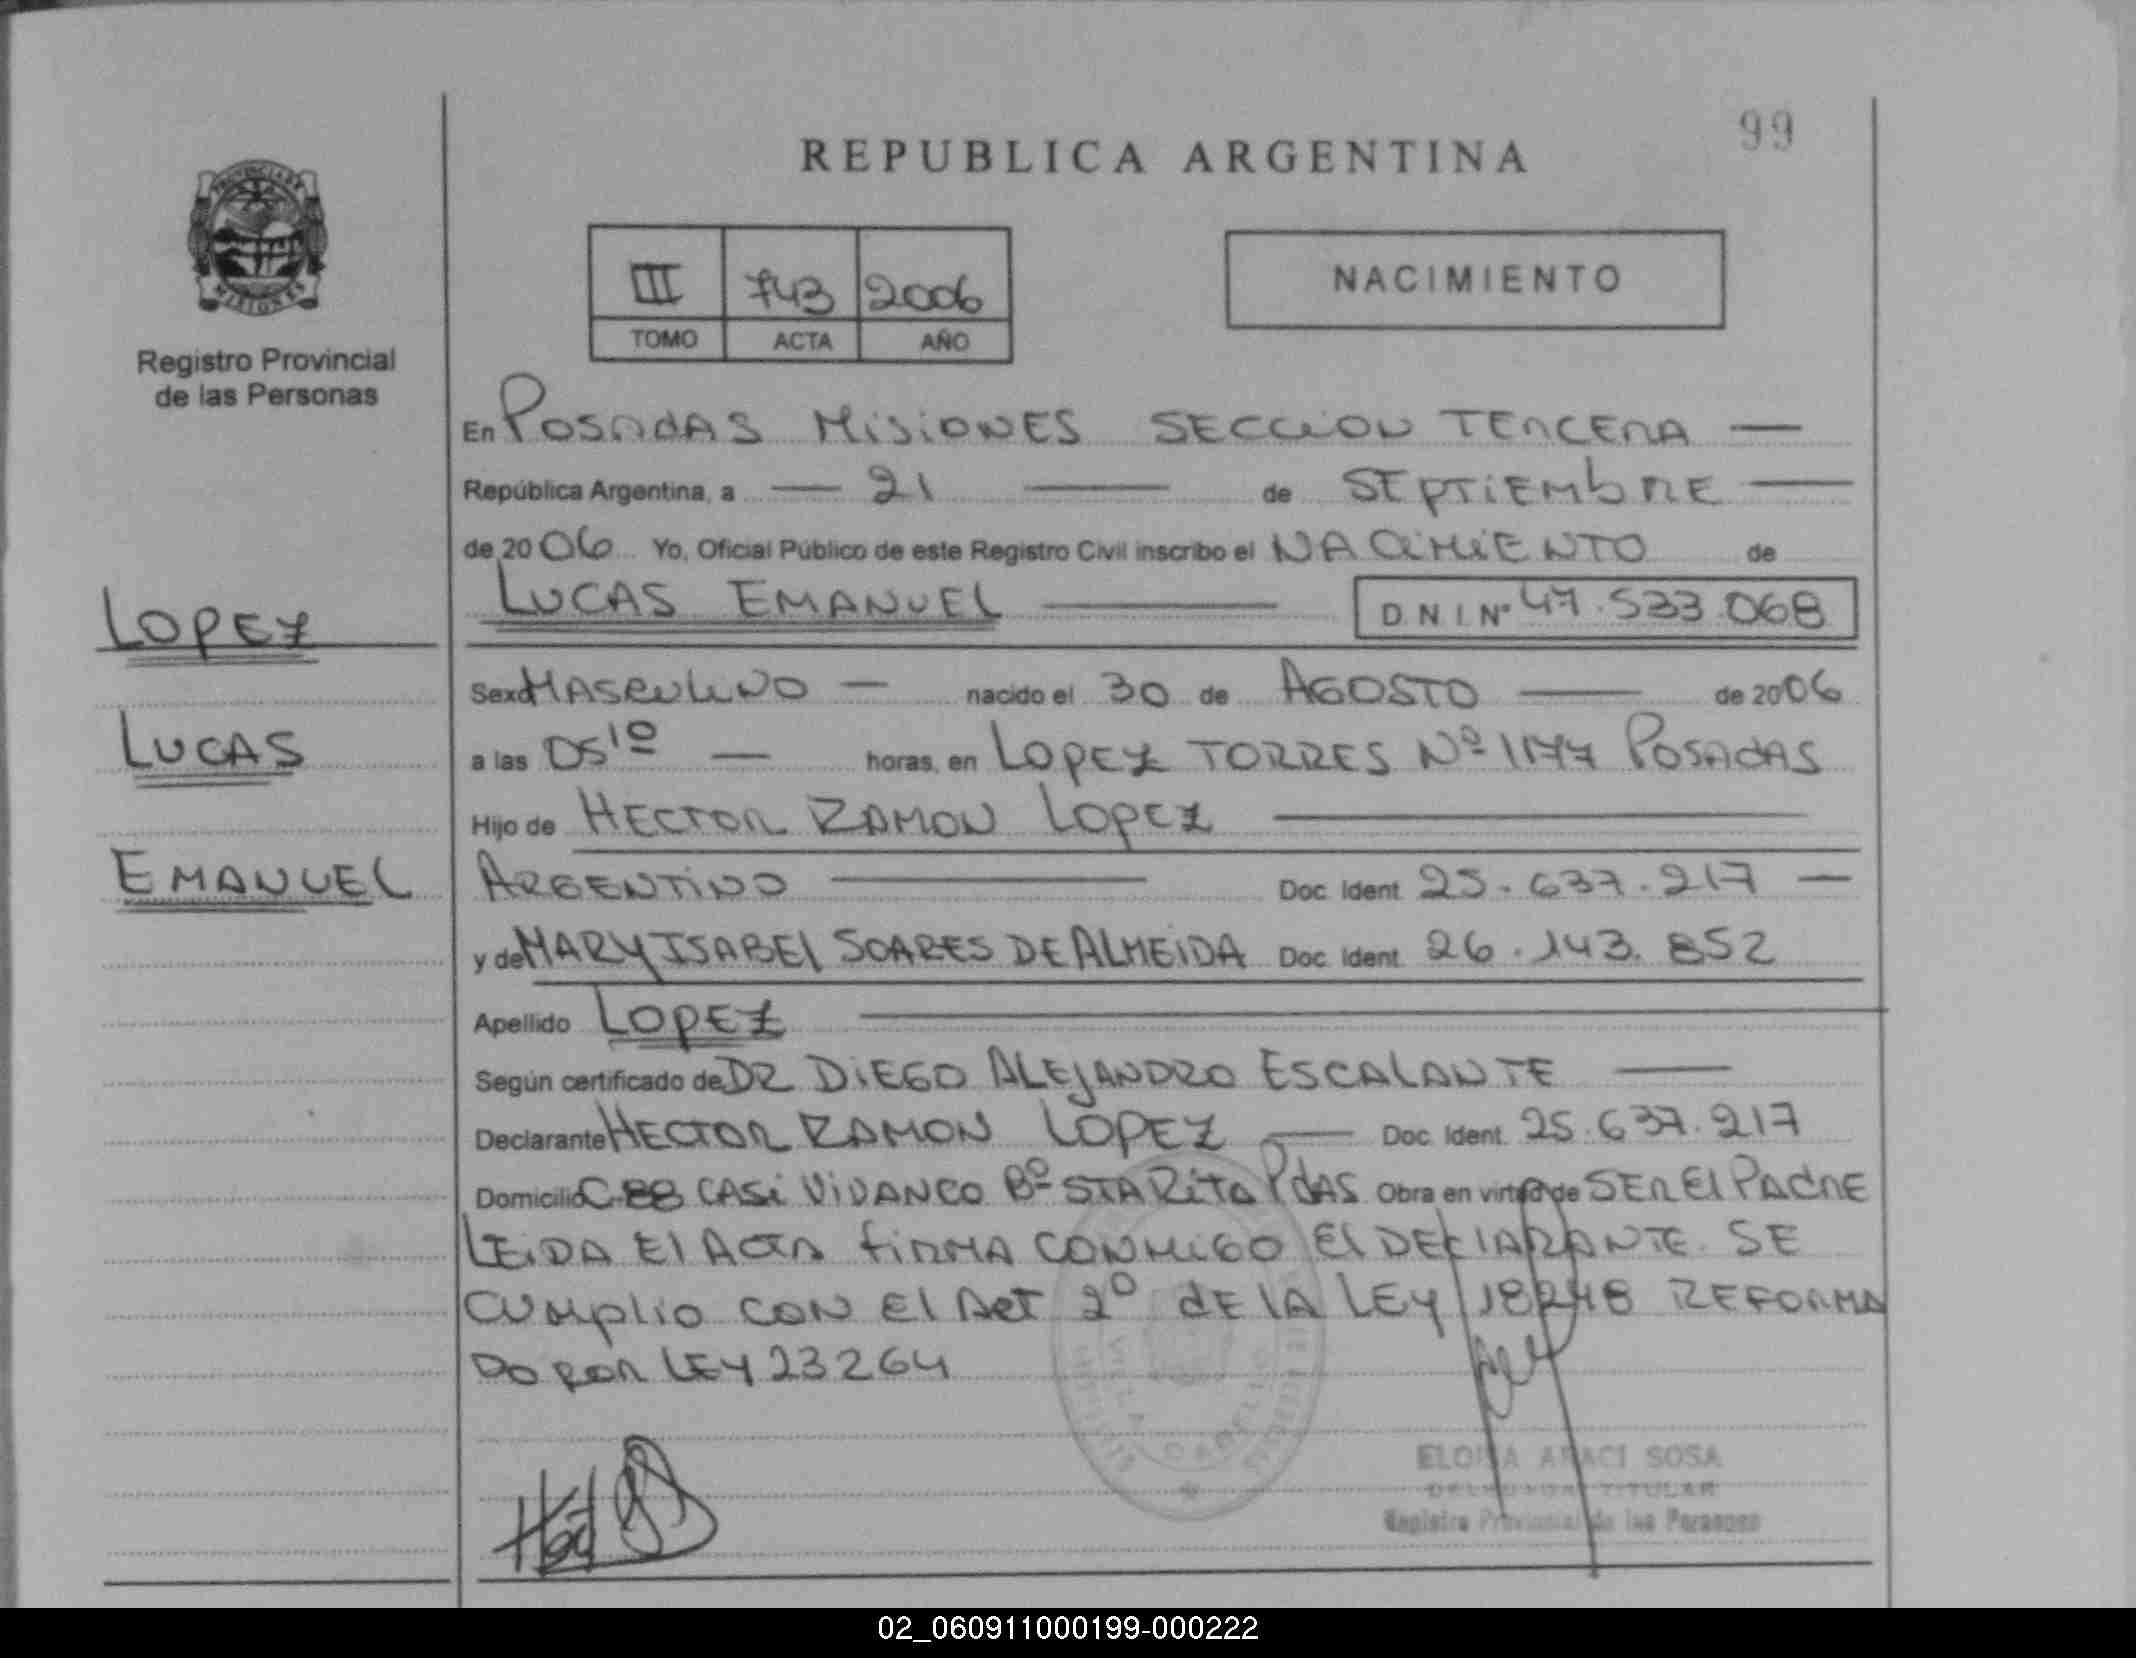 99
REPUBLICA ARGENTINA
PROVINCIA DE
MISIONES
Registro Provincial
de las Personas
III 743 2006
TOMO ACTA AÑO
NACIMIENTO
En POSADAS MISIONES SECCION TERCERA —
República Argentina, a — 21 — de SEPTIEMBRE —
de 2006 Yo, Oficial Público de este Registro Civil inscribo el NACIMIENTO de
LUCAS EMANUEL — D N I Nº 47.533.068
LOPEZ
LUCAS
EMANUEL
Sexo MASCULINO — nacido el 30 de AGOSTO — de 2006
a las 05¹⁰ — horas, en LOPEZ TORRES Nº 1177 POSADAS
Hijo de HECTOR RAMON LOPEZ —
ARGENTINO — Doc. Ident. 25.637.217 —
y de MARY ISABEL SOARES DE ALMEIDA Doc. Ident. 26.143.852
Apellido LOPEZ —
Según certificado de DR DIEGO ALEJANDRO ESCALANTE —
Declarante HECTOR RAMON LOPEZ — Doc. Ident. 25.637.217
Domicilio C-88 CASI VIVANCO Bº STA RITA PDAS Obra en virtud de SER EL PADRE
LEIDA EL ACTA FIRMA CONMIGO EL DECLARANTE. SE
CUMPLIO CON EL ART 2º DE LA LEY 18248 REFORMA
DO POR LEY 23264
ELOISA ARACI SOSA
TITULAR
Registro Provincial de las Personas
02_060911000199-000222